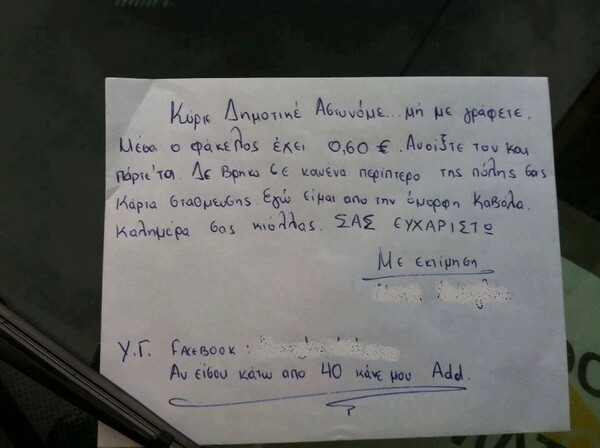 Κύριε Δημοτικέ Αστυνόμε... μή με γράφετε.
Μέσα ο φάκελος έχει 0,60 €. Ανοίξτε τον και
πάρτε'τα. Δε Βρήκα σε κανένα περίπτερο της πόλης σας
Κάρτα στάθμευσης. Εγώ είμαι απο την όμορφη Καβάλα.
Καλημέρα σας κιόλλας. ΣΑΣ ΕΥΧΑΡΙΣΤΩ
Με εκτίμηση
Υ.Γ. FACEBOOK :
Αν είσαι κάτω απο 40 κάνε μου Add.